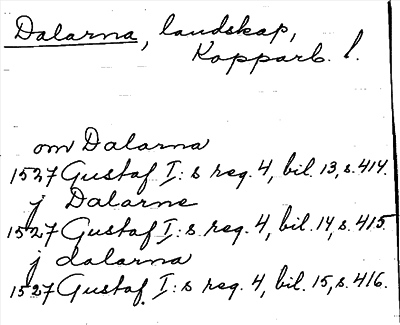 Dalarna, landskap,
Kopparb. l.
om Dalarna
1527 Gustaf I:s reg. 4, bil. 13, s. 414.
j Dalarne
1527 Gustaf I:s reg. 4, bil. 14, s. 415.
j dalarna
1527 Gustaf I:s reg. 4, bil. 15, s. 416.